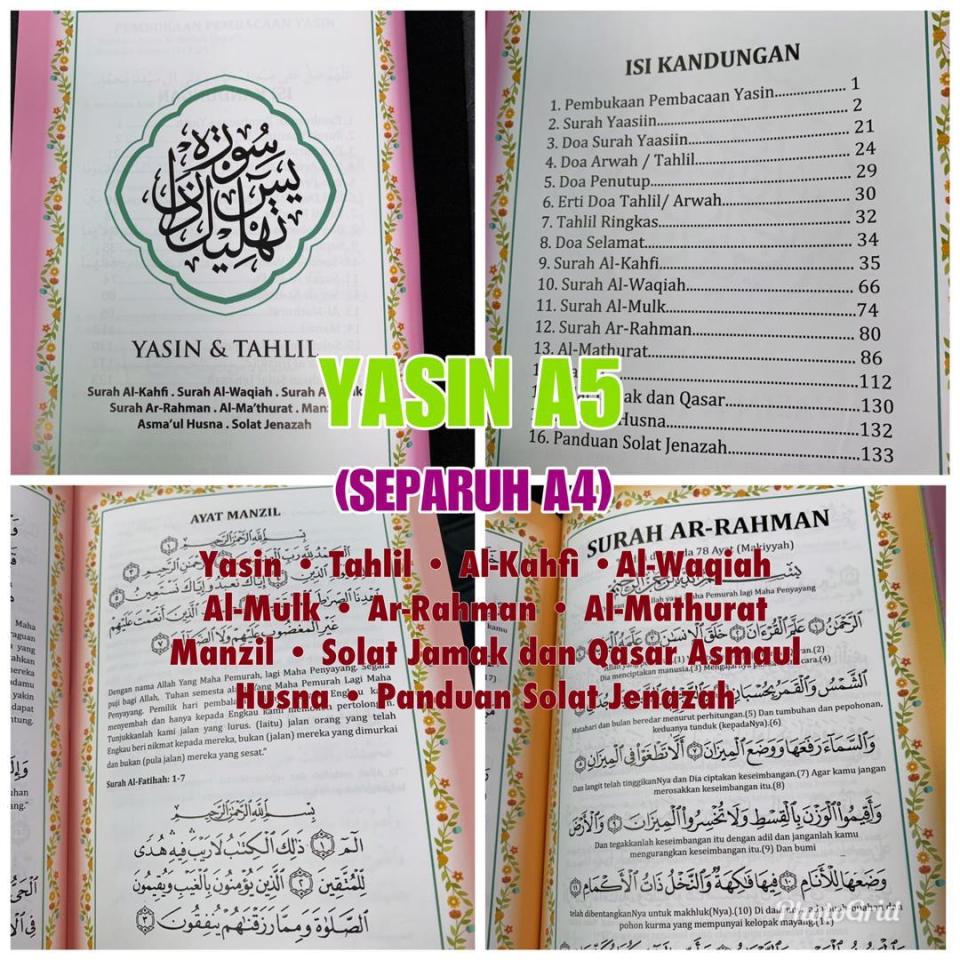 سورة
يس
تهليل
YASIN & TAHLIL
Surah Al-Kahfi . Surah Al-Waqiah . Surah
Surah Ar-Rahman . Al-Ma'thurat .
Asma'ul Husna . Solat Jenazah
ISI KANDUNGAN
1. Pembukaan Pembacaan Yasin 1
2. Surah Yaasiin 2
3. Doa Surah Yaasiin 21
4. Doa Arwah / Tahlil 24
5. Doa Penutup 29
6. Erti Doa Tahlil/ Arwah 30
7. Tahlil Ringkas 32
8. Doa Selamat 34
9. Surah Al-Kahfi 35
10. Surah Al-Waqiah 66
11. Surah Al-Mulk 74
12. Surah Ar-Rahman 80
13. Al-Mathurat 86
112
dan Qasar 130
Husna 132
16. Panduan Solat Jenazah 133
YASIN A5
(SEPARUH A4)
Yasin • Tahlil • Al-Kahfi • Al-Waqiah
Al-Mulk • Ar-Rahman • Al-Mathurat
Manzil • Solat Jamak dan Qasar Asmaul
Husna • Panduan Solat Jenazah
AYAT MANZIL
بِسْمِ اللَّهِ الرَّحْمَٰنِ الرَّحِيمِ ١
غَيْرِ الْمَغْضُوبِ عَلَيْهِمْ وَلَا الضَّالِّينَ ٧
Dengan nama Allah Yang Maha Pemurah, lagi Maha Penyayang. Segala
puji bagi Allah, Tuhan semesta Yang Maha Pemurah Lagi Maha
Penyayang. Pemilik hari
menyembah dan hanya kepada Engkau kami memohon pertolongan.
Tunjukkanlah kami jalan yang lurus. (Iaitu) jalan orang yang telah
Engkau beri nikmat kepada mereka, bukan (jalan) mereka yang dimurkai
dan bukan (pula jalan) mereka yang sesat."
Surah Al-Fatihah: 1-7
بِسْمِ اللَّهِ الرَّحْمَٰنِ الرَّحِيمِ
الٓمٓ ١ ذَٰلِكَ الْكِتَابُ لَا رَيْبَ فِيهِ هُدًى
لِّلْمُتَّقِينَ ٢ الَّذِينَ يُؤْمِنُونَ بِالْغَيْبِ وَيُقِيمُونَ
الصَّلَاةَ وَمِمَّا رَزَقْنَاهُمْ يُنفِقُونَ ٣
SURAH AR-RAHMAN
78 Ayat (Makiyyah)
Maha Pemurah lagi Maha Penyayang
الرَّحْمَٰنُ ١ عَلَّمَ الْقُرْآنَ ٢ خَلَقَ الْإِنسَانَ ٣
Dia menciptakan manusia.(3)
الشَّمْسُ وَالْقَمَرُ بِحُسْبَانٍ
Matahari dan bulan beredar menurut perhitungan.(5) Dan tumbuhan dan pepohonan,
keduanya tunduk (kepadaNya).(6)
وَالسَّمَاءَ رَفَعَهَا وَوَضَعَ الْمِيزَانَ ٧ أَلَّا تَطْغَوْا فِي الْمِيزَانِ ٨
Dan langit telah tinggikanNya dan Dia ciptakan keseimbangan.(7) Agar kamu jangan
merosakkan keseimbangan itu.(8)
وَأَقِيمُوا الْوَزْنَ بِالْقِسْطِ وَلَا تُخْسِرُوا الْمِيزَانَ ٩ وَالْأَرْضَ
Dan tegakkanlah keseimbangan itu dengan adil dan janganlah kamu
mengurangkan keseimbangan itu.(9) Dan bumi
وَضَعَهَا لِلْأَنَامِ ١٠ فِيهَا فَاكِهَةٌ وَالنَّخْلُ ذَاتُ الْأَكْمَامِ ١١
telah dibentangkanNya untuk makhluk(Nya).(10) Di
pohon kurma yang mempunyai kelopak mayang.(11)
PhotoGrid